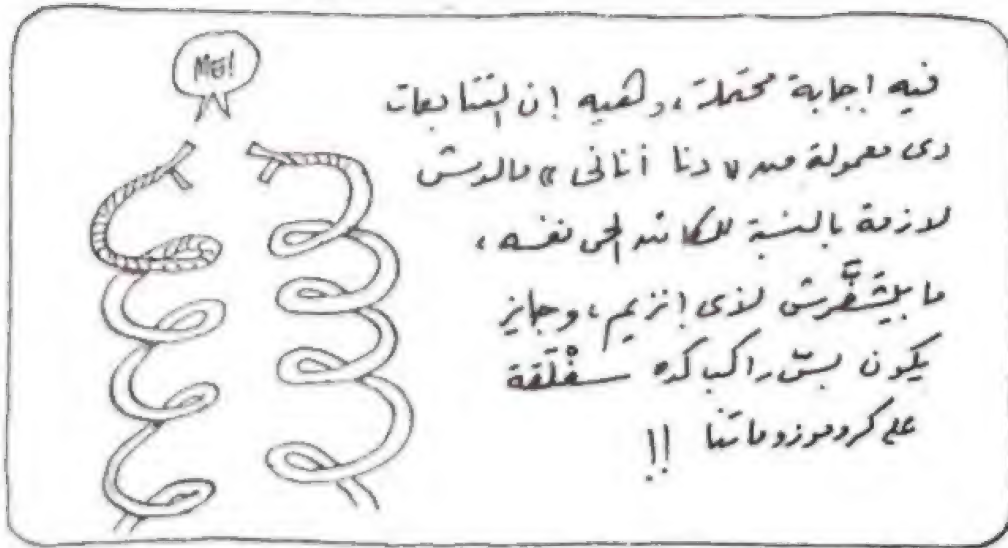 ME!
فيه إجابة محتملة، وهيه إن التتابعات
دى معمولة من «دنا أنانى» مالوش
لازمة بالنسبة للكائن الحى نفسه،
ما بيشفَّرش لأى إنزيم، وجايز
يكون بسّ راكب كده سفْلَقة
على كروموزوماتنا !!